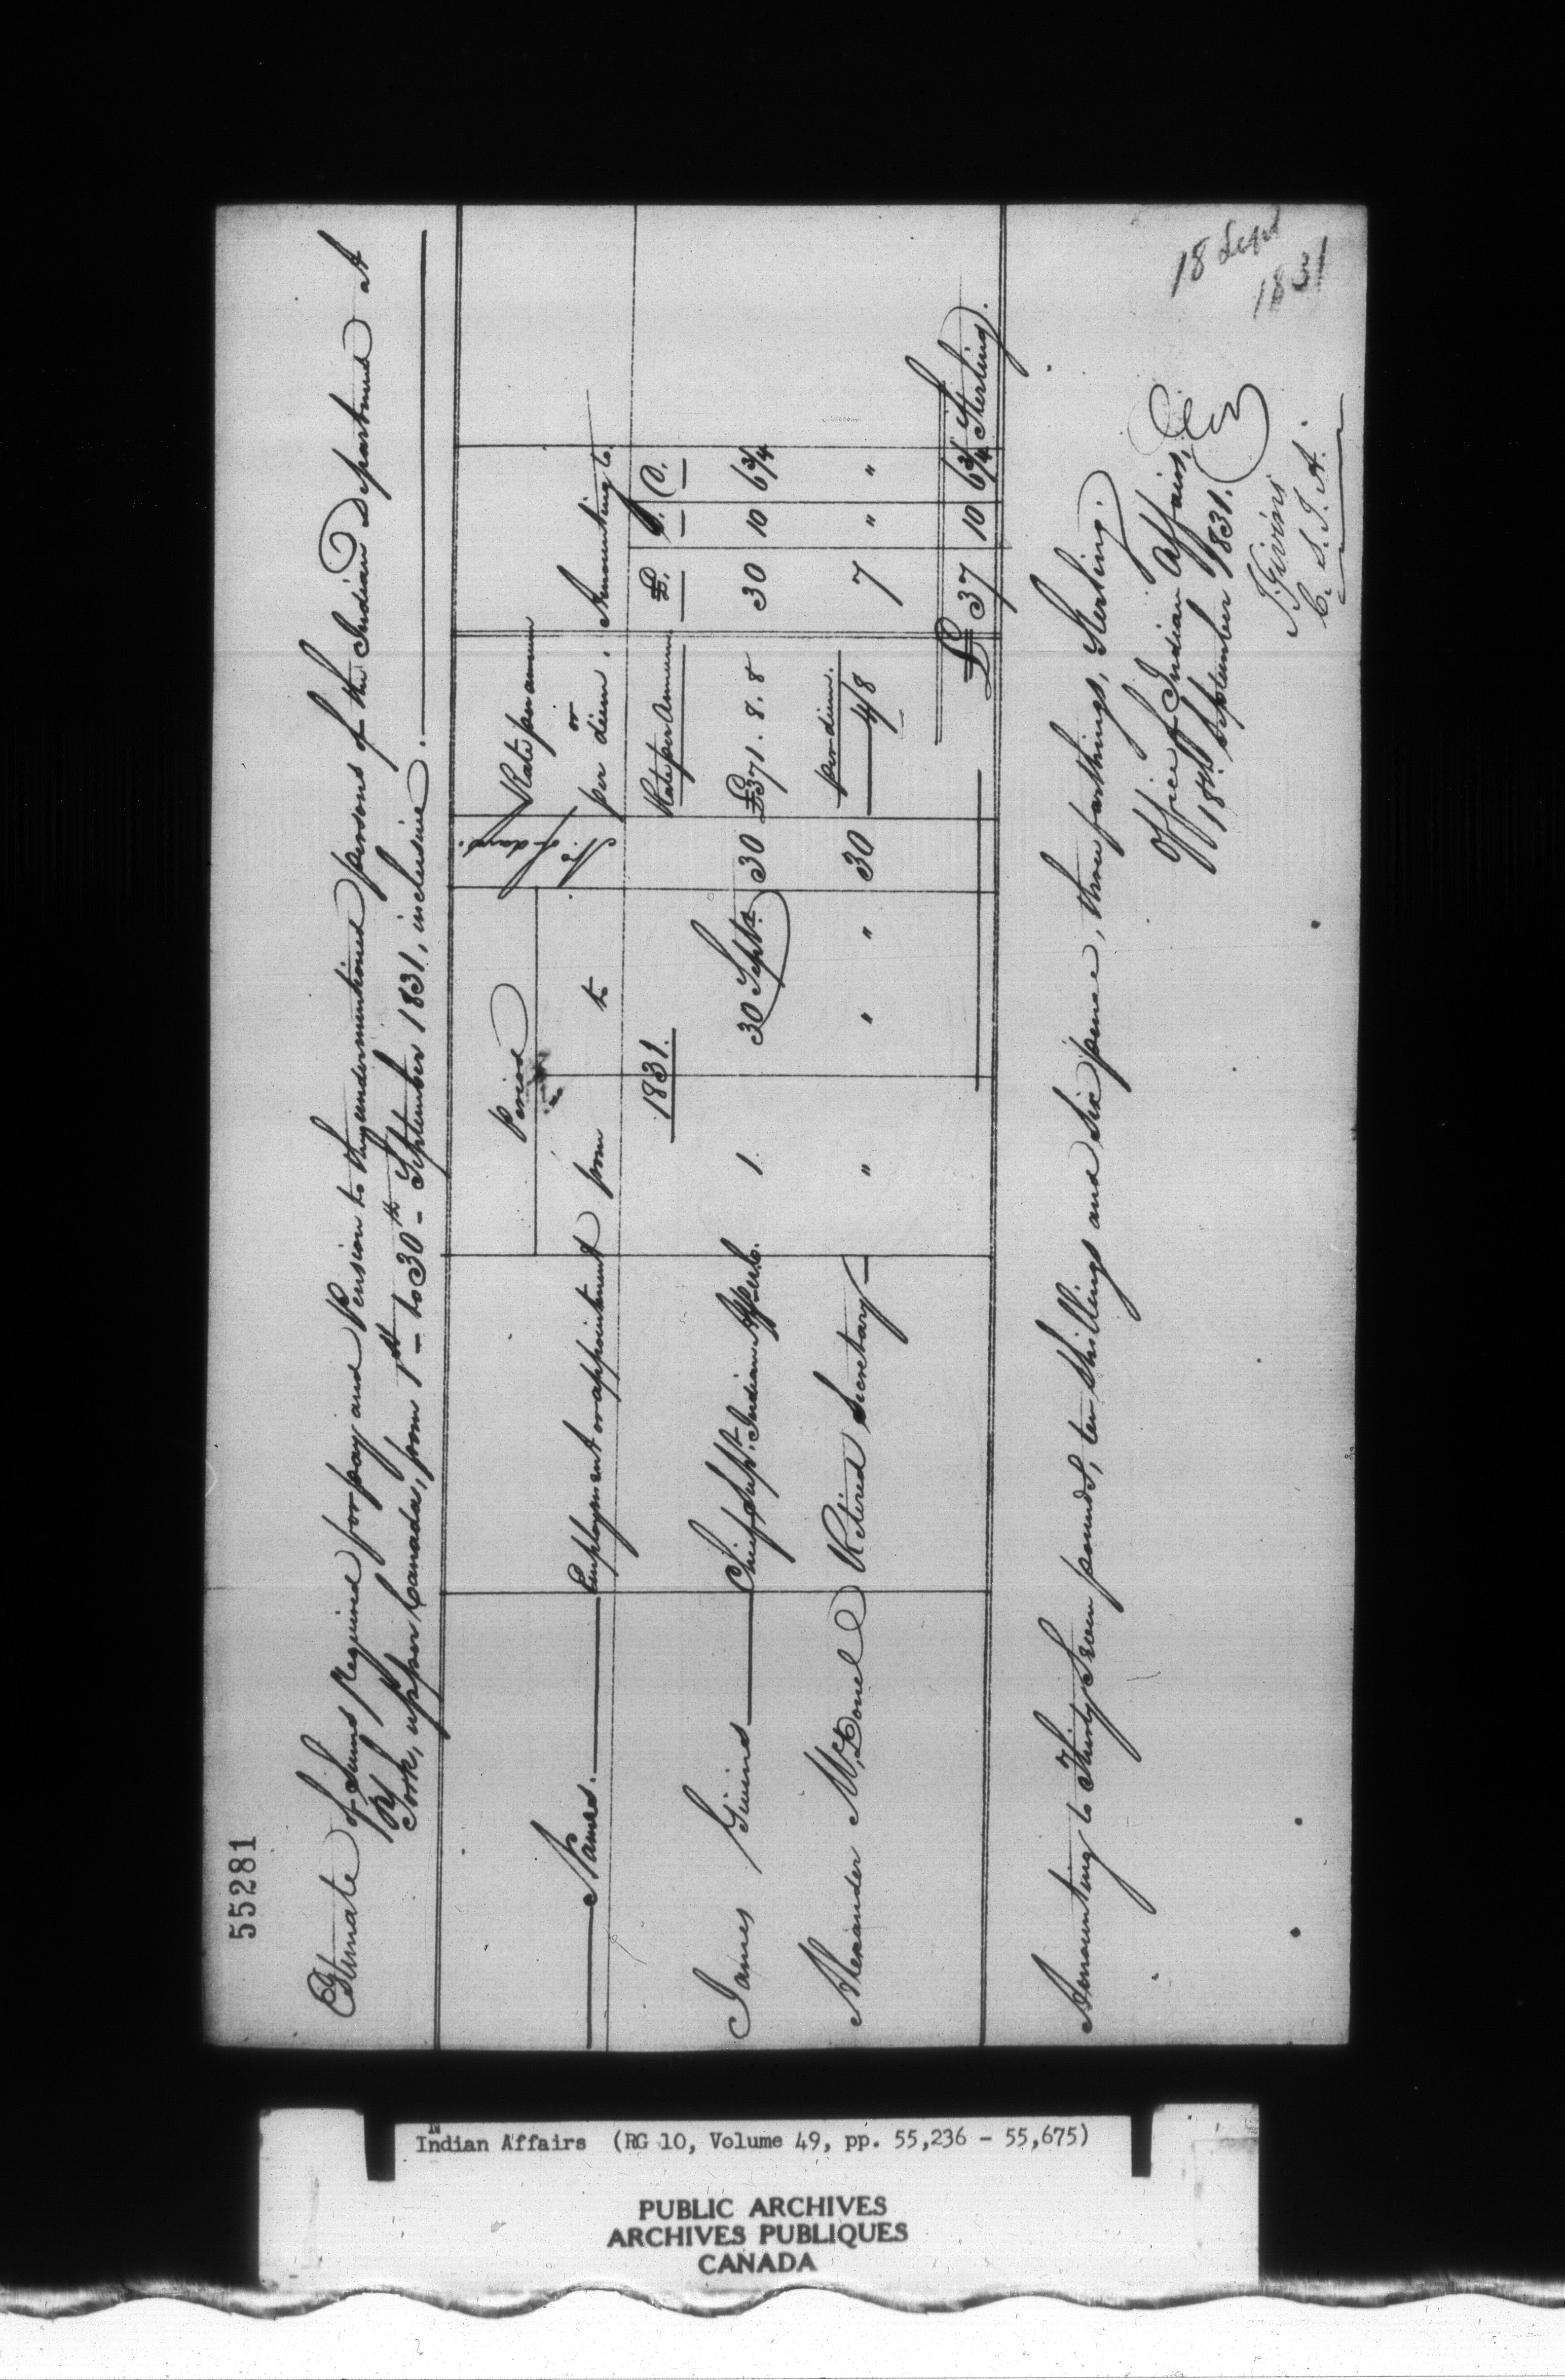 55281
Estimate of Sums Required for pay and Pension to the undermentioned persons of the Indian Department at
York, Upper Canada, from 1st to 30th September 1831, inclusive.
Names. Employment or appointment Period from to No. of days. Rate per annum or per diem. Amounting to.
1831. Rate per Annum. £. S. D.
James Givins Chief Supt. Indian Affrs. U.C. 1 30 Septr. 30 £371. 8. 8 30 10 6 3/4
per diem.
Alexander McDonel Retired Secretary " " " 30 4/8 7 " "
£ 37 10 6 3/4 Sterling.
Amounting to Thirty Seven pounds, ten Shillings and Six pence, three farthings, Sterling.
Office of Indian Affairs,
18th September 1831.
J Givins
C. S. I. A.
18 Sept
1831
Indian Affairs (RG 10, Volume 49, pp. 55,236 - 55,675)
PUBLIC ARCHIVES
ARCHIVES PUBLIQUES
CANADA